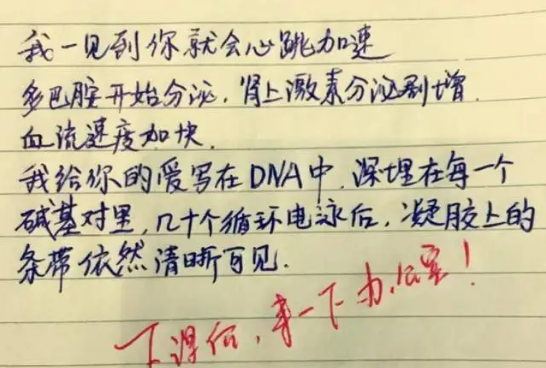 我一见到你就会心跳加速
多巴胺开始分泌，肾上激素分泌剧增.
血流速度加快.
我给你的爱写在DNA中，深埋在每一个
碱基对里，几十个循环电泳后，凝胶上的
条带依然清晰可见.
下课后，来一下办公室！